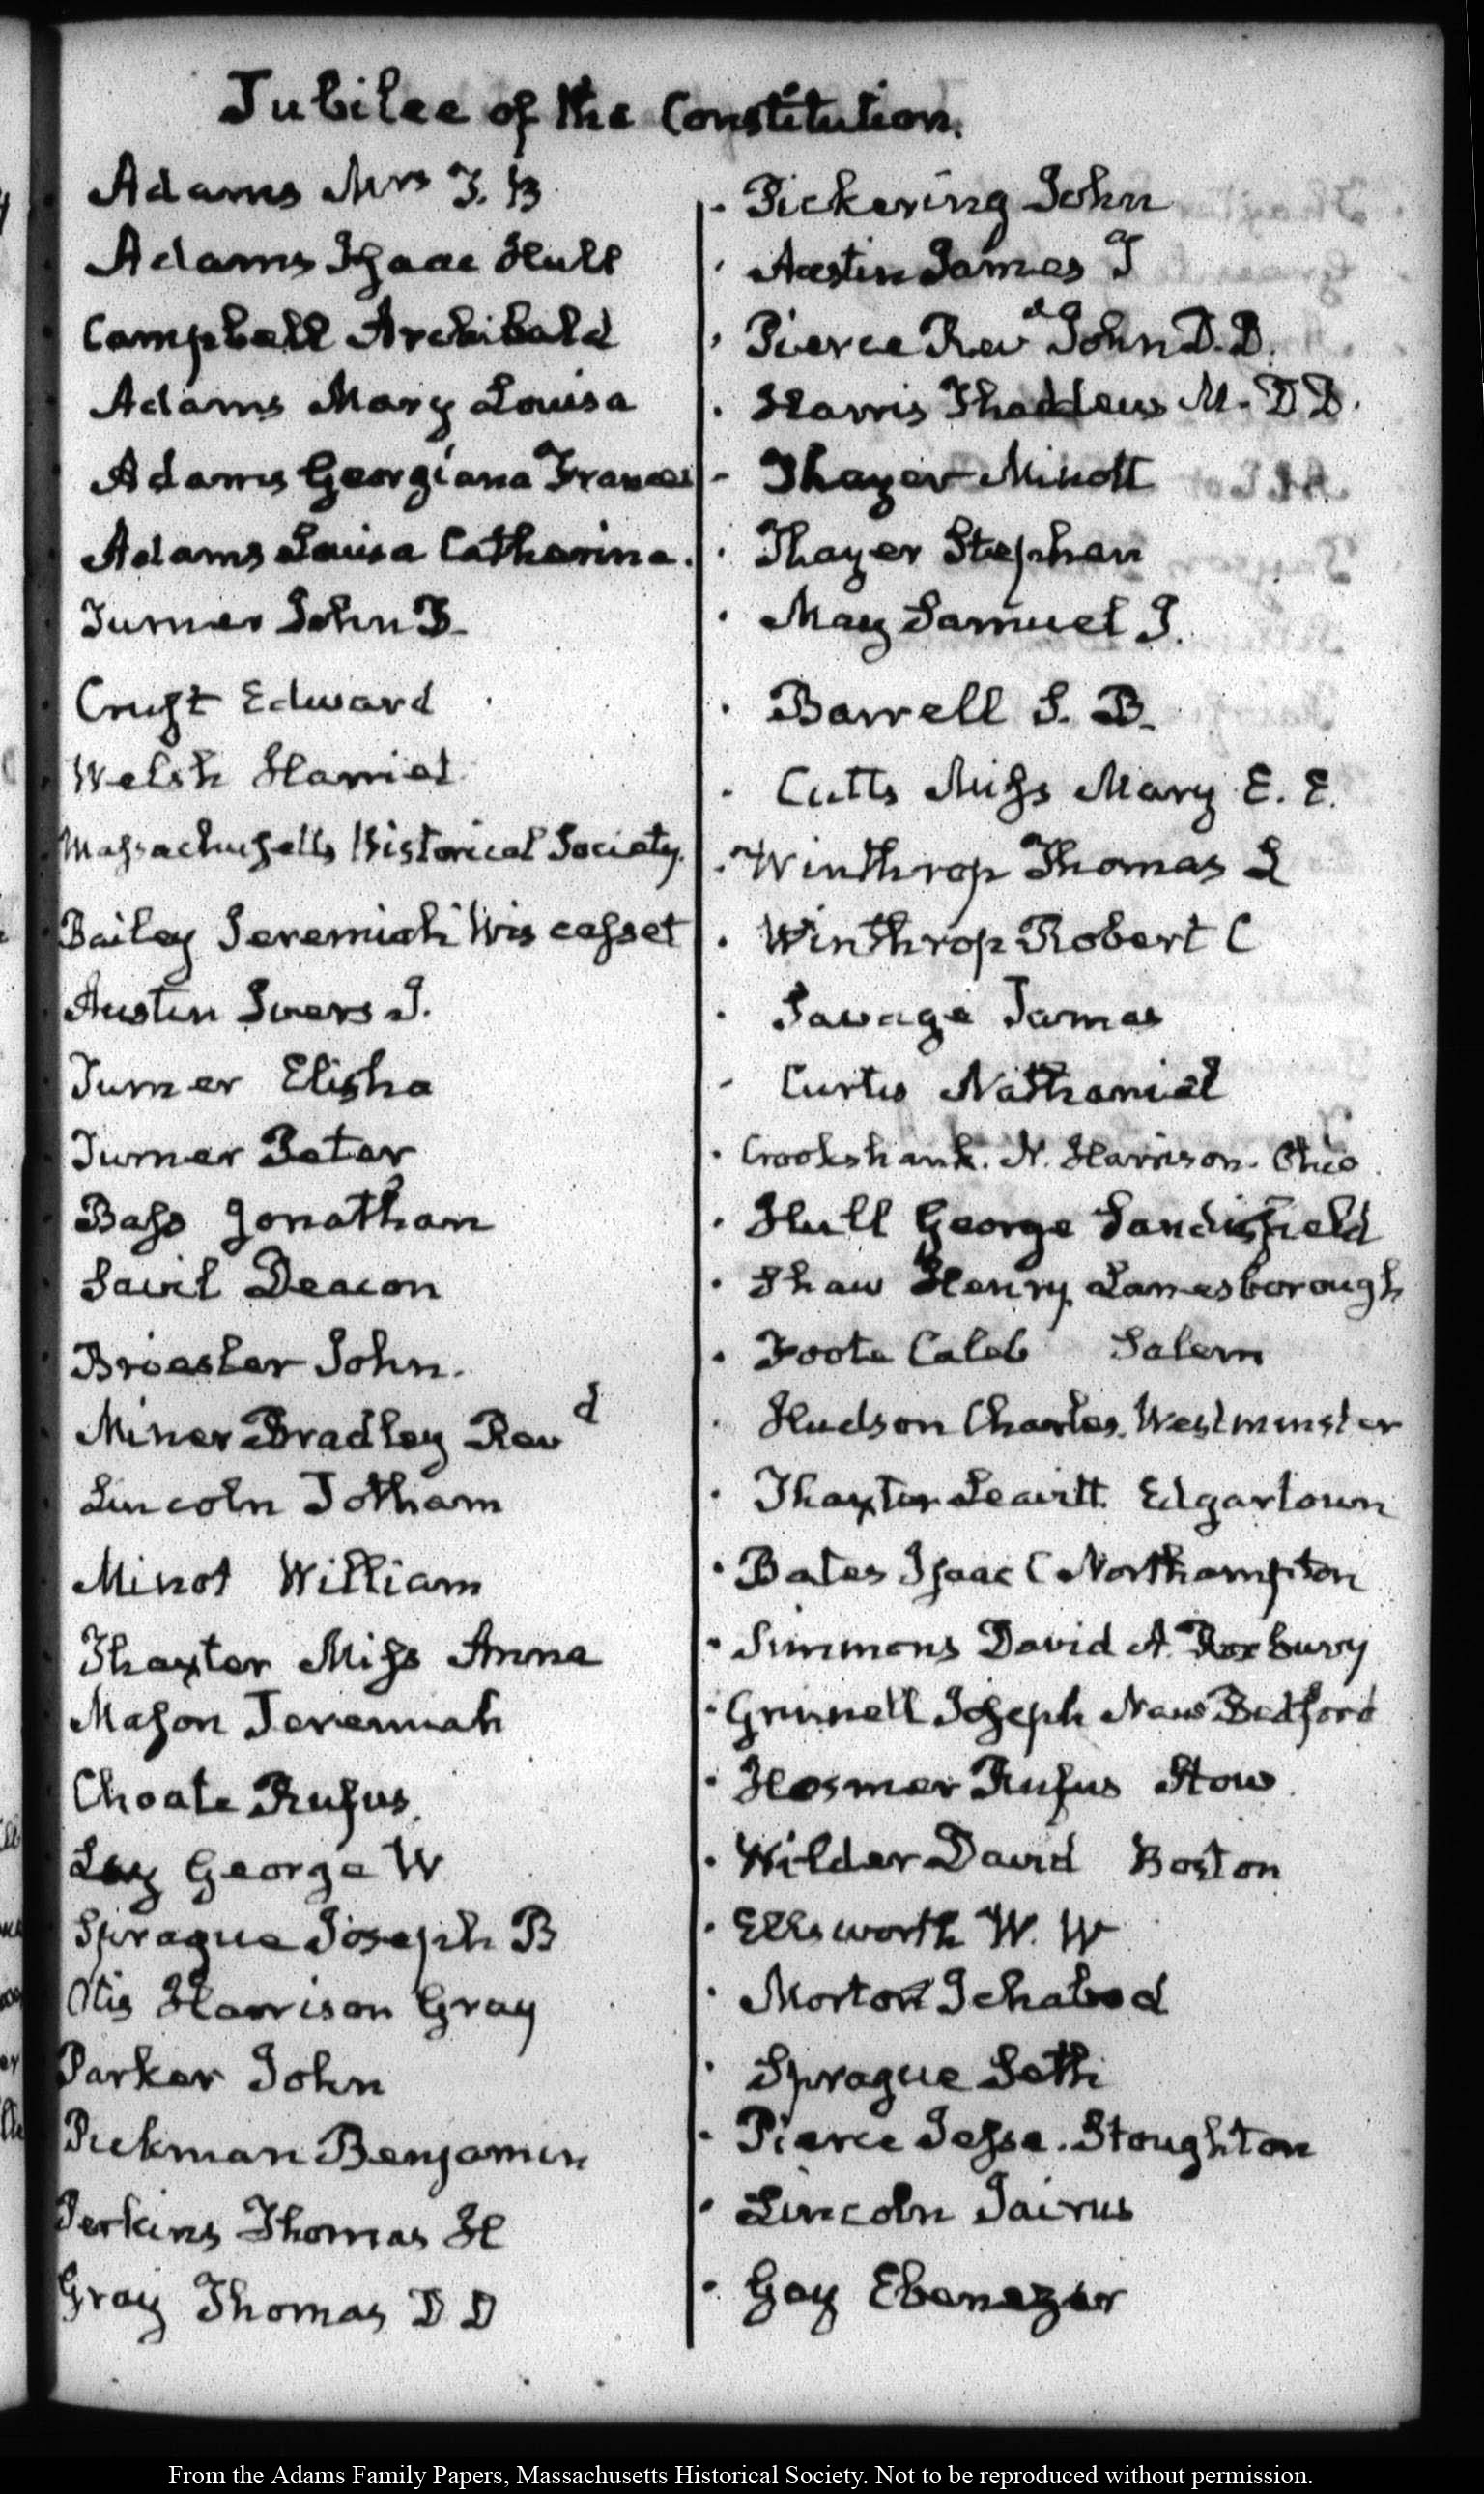 Jubilee of the Constitution.
Adams Mrs T. B
Adams Isaac Hull
Campbell Archibald
Adams Mary Louisa
Adams Georgiana Frances
Adams Louisa Catherine.
Turner John B.
Cruft Edward
Welsh Harriet
Massachusetts Historical Society.
Bailey Jeremiah Wiscasset
Austin Ivers J.
Turner Elisha
Turner Peter
Bass Jonathan
Savil Deacon
Briesler John.
Miner Bradley Revd
Lincoln Jotham
Minot William
Thaxter Miss Anna
Mason Jeremiah
Choate Rufus.
Lay George W
Sprague Joseph B
Otis Harrison Gray
Parker John
Pickman Benjamin
Perkins Thomas H
Gray Thomas D D
Pickering John
Austin James T
Pierce Revd John D. D.
Harris Thaddeus M. D D.
Thayer Minott
Thayer Stephen
May Samuel J.
Barrell S. B.
Cutts Miss Mary E. E.
Winthrop Thomas L
Winthrop Robert C
Savage James
Curtis Nathaniel
Crookshank. N. Harrison. Ohio.
Hull George Sandisfield
Shaw Henry Lanesborough
Foote Caleb Salem
Hudson Charles. Westminster
Thaxter Leavitt. Edgartown
Bates Isaac C Northampton
Simmons David A. Roxbury
Grinnell Joseph New Bedford
Hosmer Rufus Stow.
Wilder David Boston
Ellsworth W. W
Morton Ichabod
Sprague Seth
Pierce Jesse. Stoughton
Lincoln Jairus
Gay Ebenezer
From the Adams Family Papers, Massachusetts Historical Society. Not to be reproduced without permission.